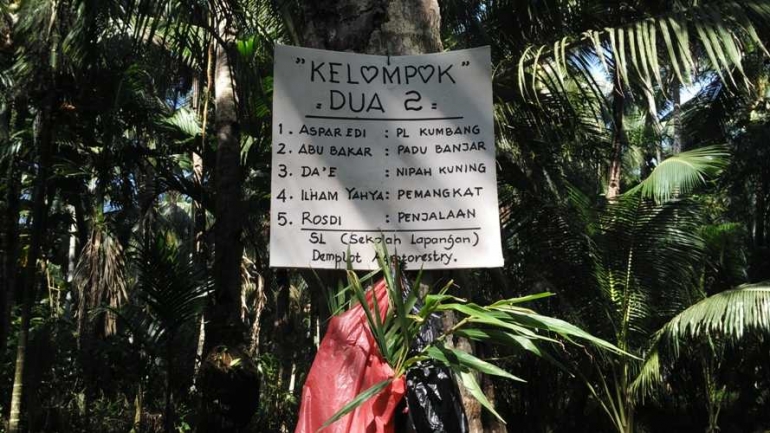 "KELOMPOK"
= DUA 2 =
1. ASPAR EDI : PL KUMBANG
2. ABU BAKAR : PADU BANJAR
3. DA'E : NIPAH KUNING
4. ILHAM YAHYA : PEMANGKAT
5. ROSDI : PENJALAAN
SL (Sekolah Lapangan)
Demplot Agroforestry.